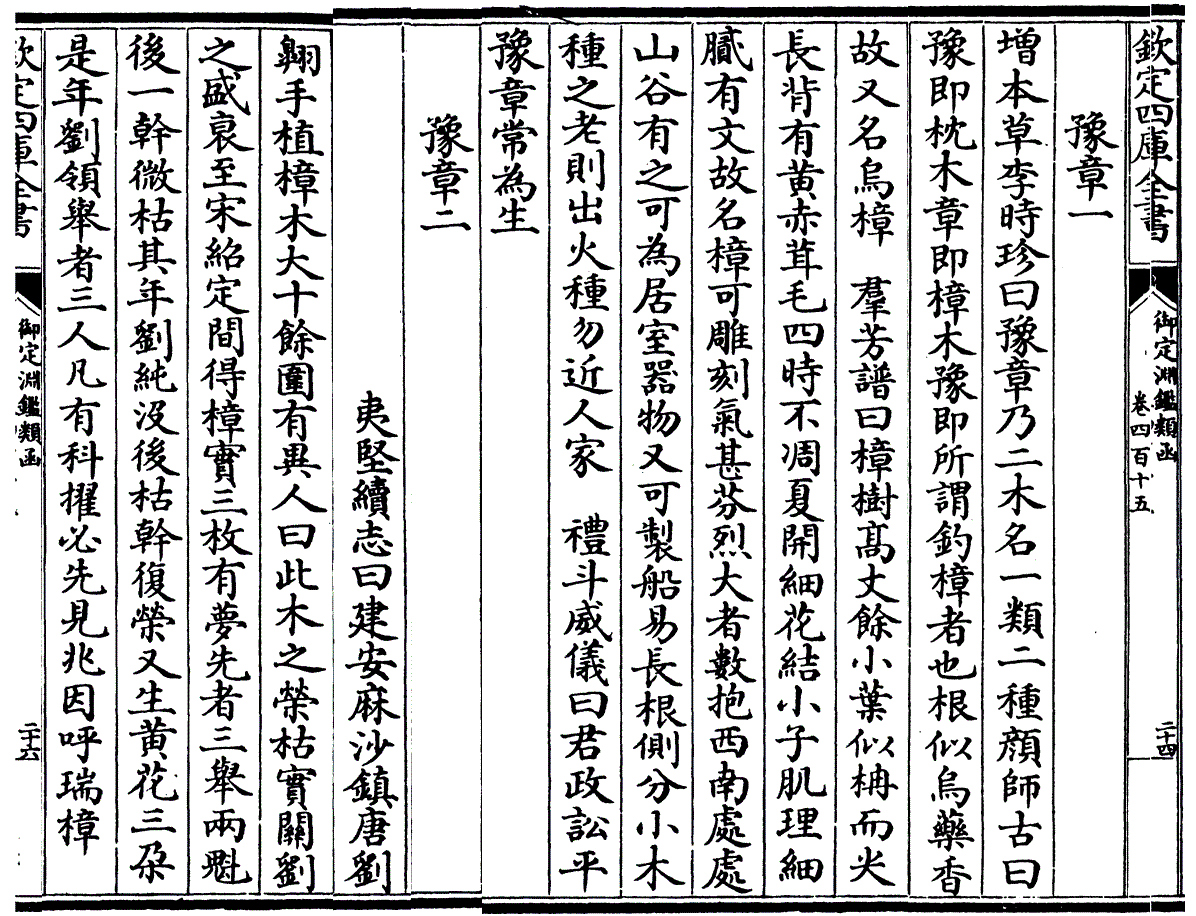 欽定四庫全書
御定淵鑑類函
卷四百十五
二十四
豫章一
增本草李時珍曰豫章乃二木名一類二種顔師古曰
豫即枕木章即樟木豫即所謂釣樟者也根似烏藥香
故又名烏樟　羣芳譜曰樟樹髙丈餘小葉似枏而尖
長背有黄赤茸毛四時不凋夏開細花結小子肌理細
膩有文故名樟可雕刻氣甚芬烈大者數抱西南處處
山谷有之可為居室器物又可製船易長根側分小木
種之老則出火種勿近人家　禮斗威儀曰君政訟平
豫章常為生
豫章二
夷堅續志曰建安麻沙鎮唐劉
翺手植樟木大十餘圍有異人曰此木之榮枯實關劉
之盛衰至宋紹定間得樟實三枚有夢先者三舉兩魁
後一幹微枯其年劉純沒後枯幹復榮又生黄花三朶
是年劉領舉者三人凡有科擢必先見兆因呼瑞樟
欽定四庫全書
御定淵鑑類函
二十六